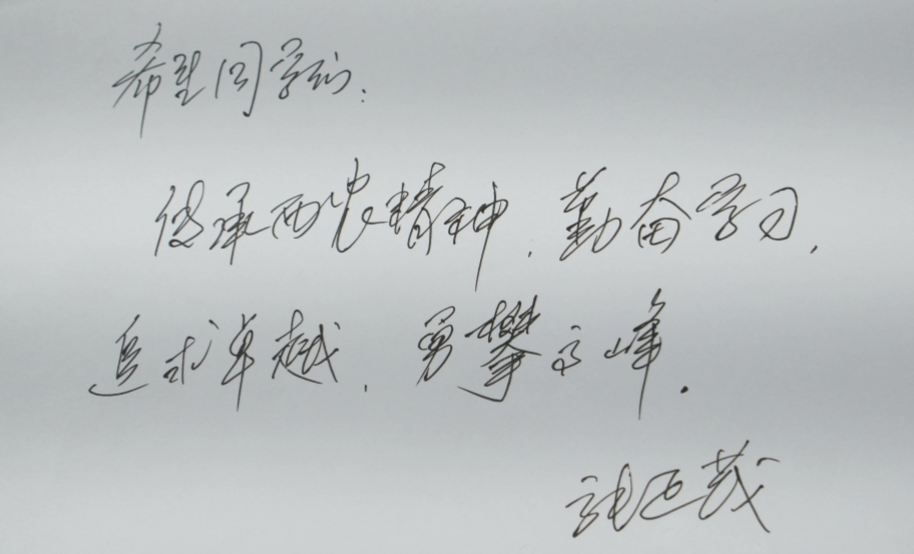 希望同学们:
传承西农精神,勤奋学习,
追求卓越,勇攀高峰.